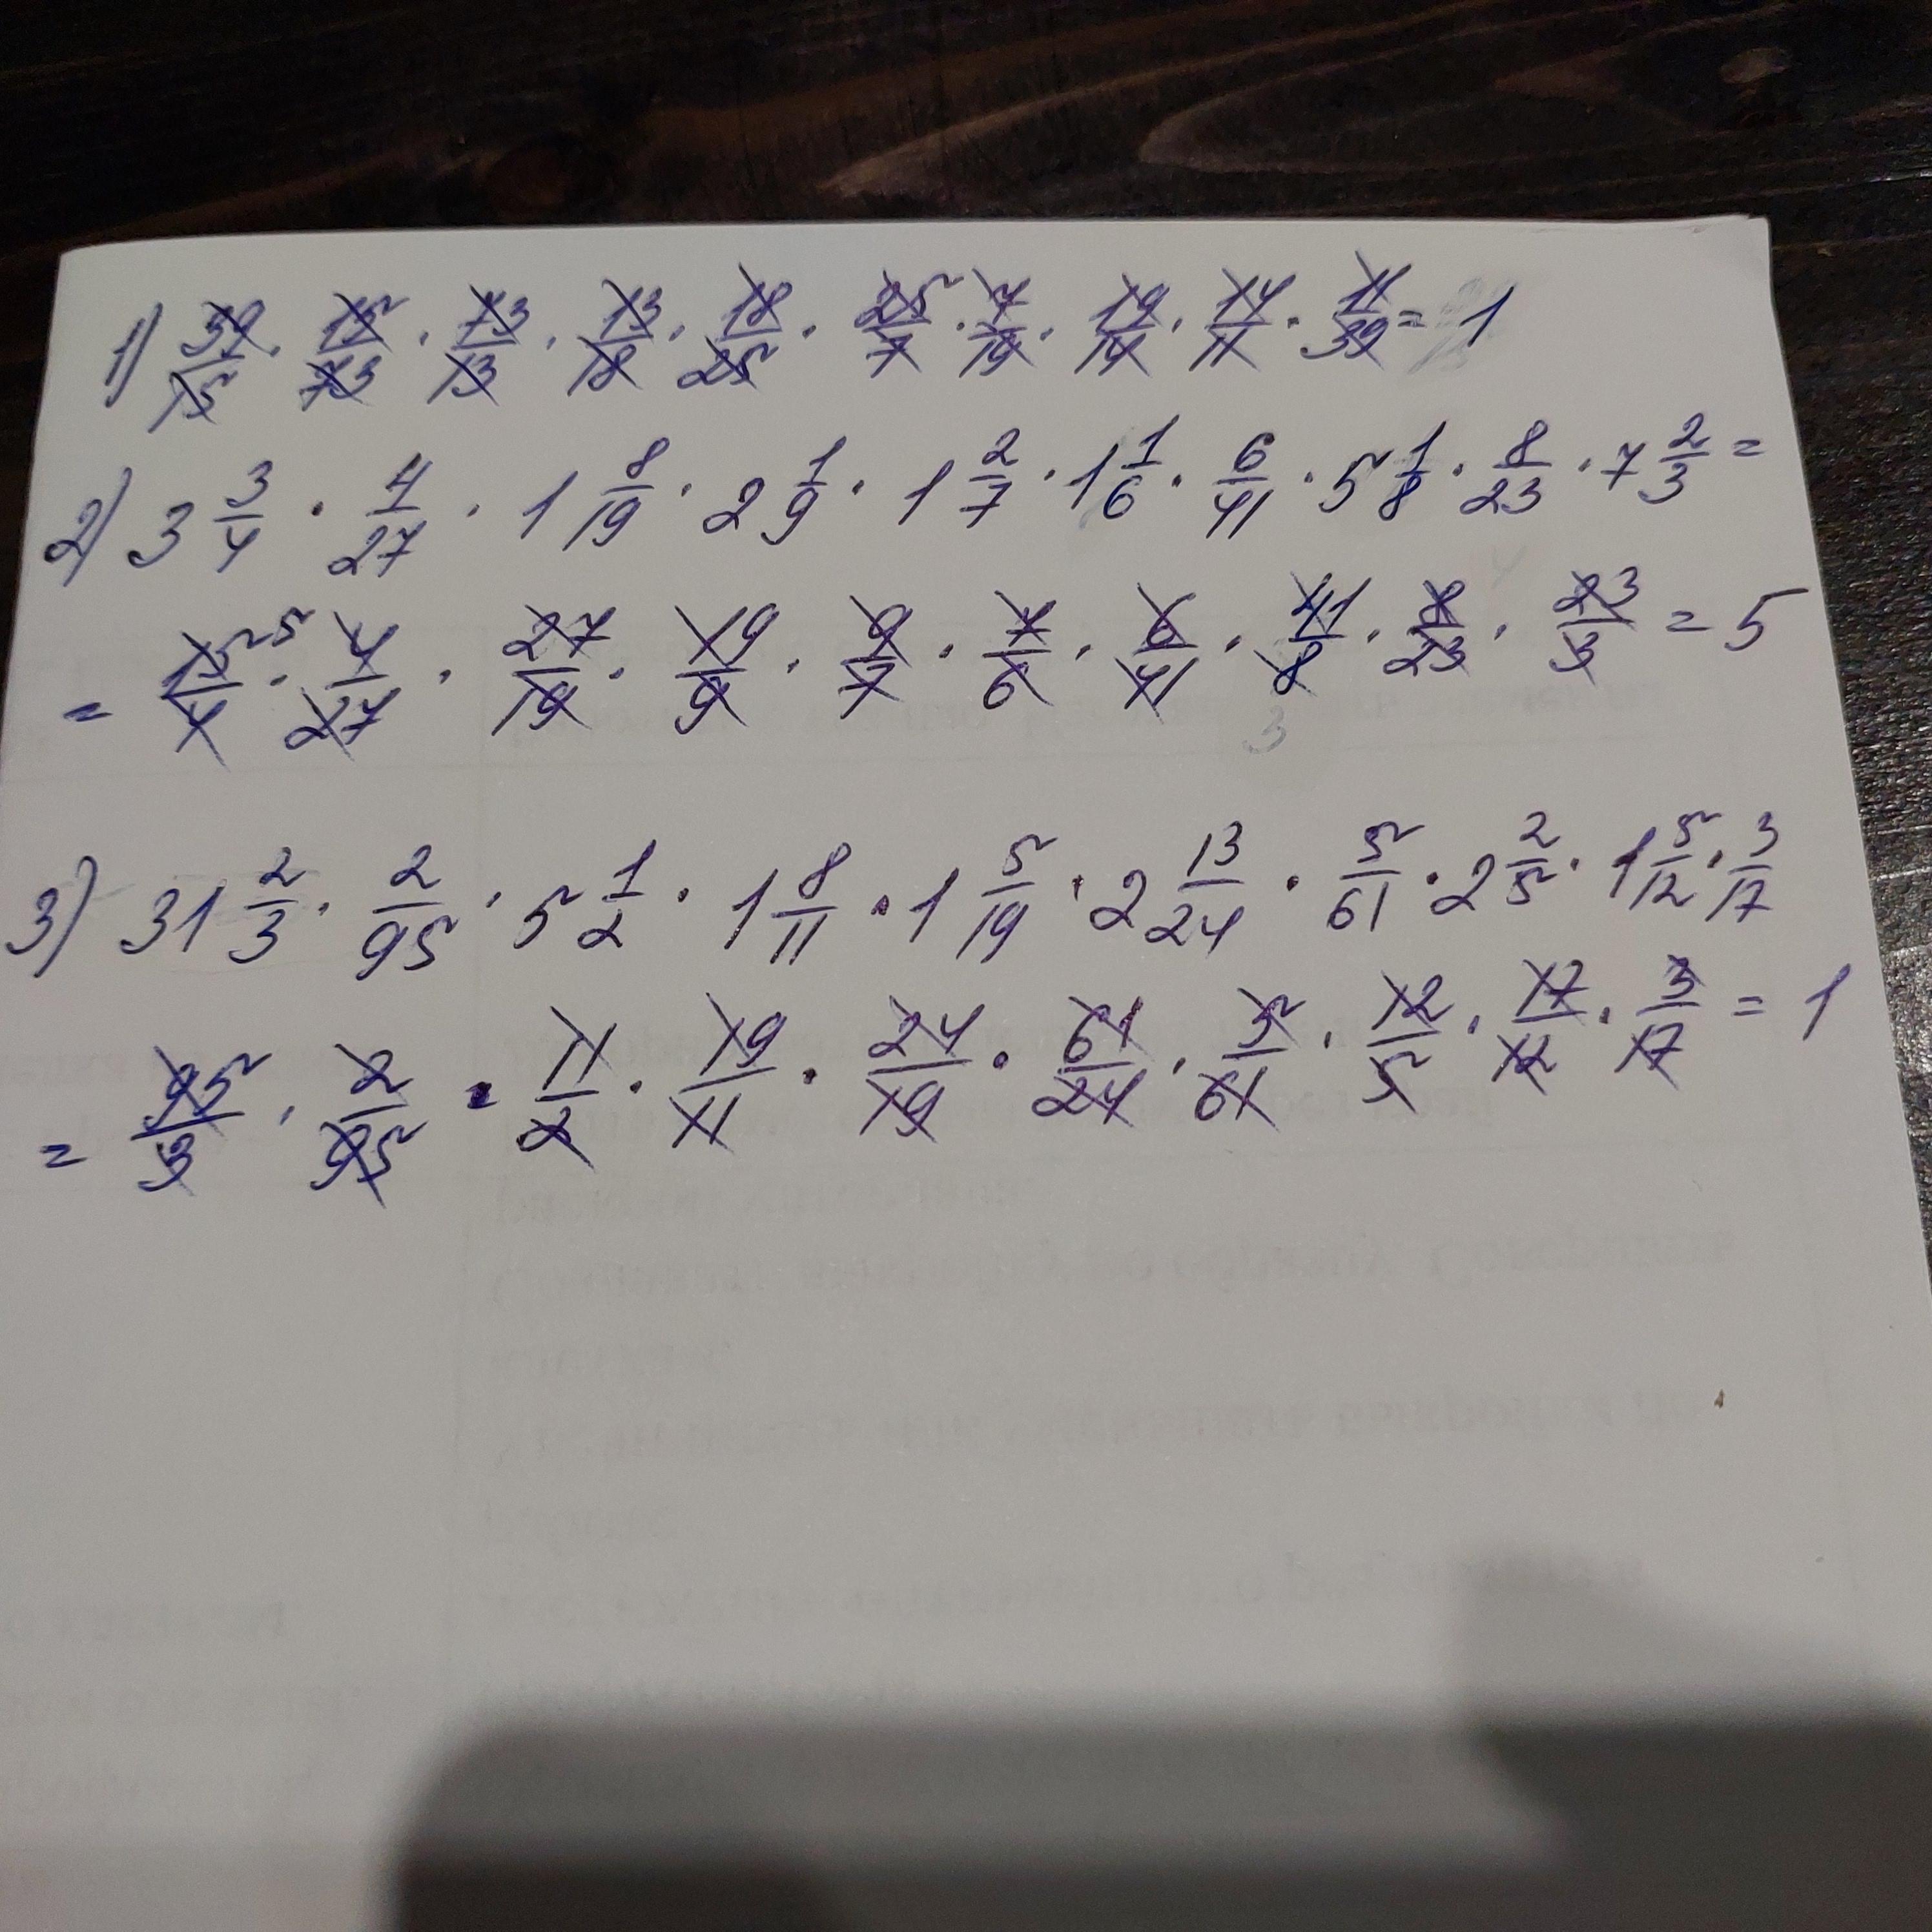 1) 39/15 · 15/73 · 73/13 · 13/18 · 18/25 · 25/7 · 7/19 · 19/14 · 14/11 · 11/39 = 1
2) 3 3/4 · 4/27 · 1 8/19 · 2 1/9 · 1 2/7 · 1 1/6 · 6/41 · 5 1/8 · 8/23 · 7 2/3 =
= 15/4 5 · 4/27 · 27/19 · 19/9 · 9/7 · 7/6 · 6/41 · 41/8 · 8/23 · 23/3 = 5
3
3) 31 2/3 · 2/95 · 5 1/2 · 1 8/11 · 1 5/19 · 2 13/24 · 5/61 · 2 2/5 · 1 5/12 · 3/17
= 95/3 · 2/95 · 11/2 · 19/11 · 24/19 · 61/24 · 5/61 · 12/5 · 17/12 · 3/17 = 1